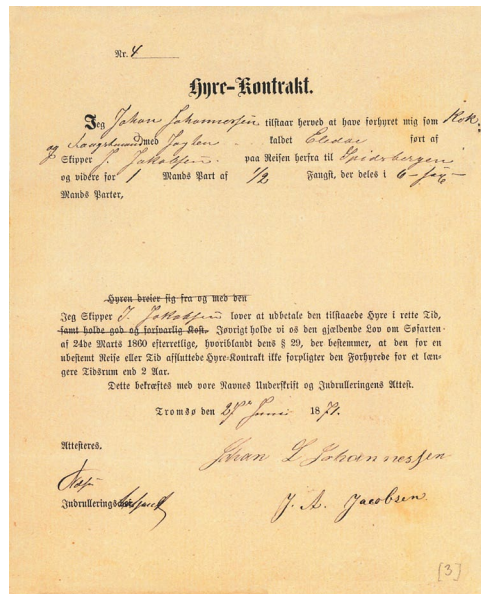 Nr. 4
Hyre-Kontrakt.
Jeg Johan Johannessen tilstaar herved at have forhyret mig som Kok-
og Fangstmand med Jagten kaldet Elida ført af
Skipper J. Jakobsen. paa Reisen herfra til Spidsbergen
og videre for 1 Mands Part af 1/2 Fangst, der deles i 6-sex-
Mands Parter,
Hyren dreier sig fra og med den
Jeg Skipper J. Jakobsen lover at udbetale den tilstaaede Hyre i rette Tid,
samt holde god og forsvarlig Kost. Iøvrigt holde vi os den gjældende Lov om Søfarten
af 24de Marts 1860 esterretlige, hvoriblandt dens § 29, der bestemmer, at den for en
ubestemt Reise eller Tid afsluttede Hyre-Kontrakt ikke forpligter den Forhyrede for et læn-
gere Tidsrum end 2 Aar.
Dette bekræftes med vore Navnes Underskrift og Indrulleringens Attest.
Tromsø den Juni 1871.
Attesteres.
Johan L Johannessen
Indrullerings
J. A. Jacobsen
[3]